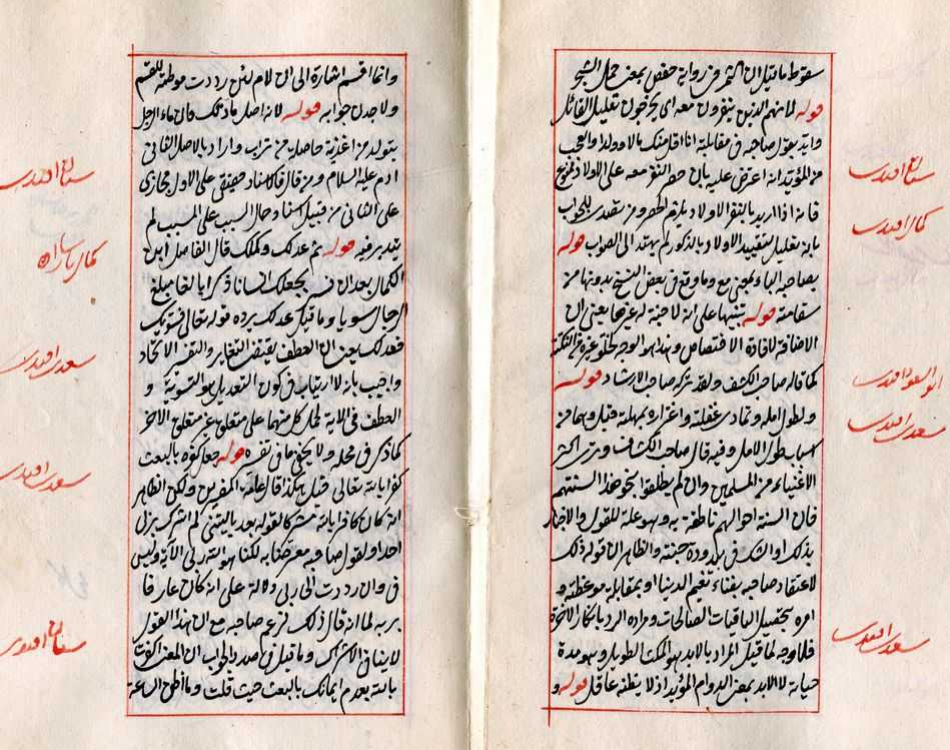 سقوط ما قيل ان الثمر فى رواية حفص بمعنى حمل الشجر
قوله لما انهم الذين ينفرون معه اى يخرجون تعليل القائل
وايد بقول صاحبه فى مقابلته انا اقل منك مالا وولدا والعجب
من المؤيد انه اعترض عليه بان حصر النفر معه على الاولاد
فانه اذا اريد بالنفر الاولاد يلزم ومن تصدى للجواب
بانه تعليل لتقييد الاولاد بالذكور لم يهتد الى الصواب قوله
بصاحبه الباء بمعنى مع وما وقع فى بعض النسخ بدونها من
قوله تنبيها على انه لا جنة له غيرها يعنى ان
الاضافة لافادة الاختصاص وبهذا الوجه
كما قاله صاحب الكشف ولقد تركه صاحب الارشاد قوله
ولطول امله وتمادى غفلته واغتراره بمهلته قيل وبهما من
اسباب طول الامل وفيه قال صاحب الكشاف وترى اكثر
الاغنياء من المسلمين وان لم يطلقوا بنحو هذا السنتهم
فان السنة احوالهم ناطقة به وهو علة للقول
بذلك او الشك فى بيدودة جنته والظاهر ان قوله ذلك
لاعتقاد صاحبه بفناء نعيم الدنيا او بمقابلة موعظته و
امره بتحصيل الباقيات الصالحات ومراده الرد بانكار الآخرة
فلا وجه لما قيل المراد بالابد هو المكث الطويل وهو مدة
حياته لا الابد بمعنى الدوام المؤبد اذ لا يظنه عاقل قوله و
سنان افندى
كمال افندى
ابو السعود افندى
سعدى افندى
سعدى افندى
وانما اقسم اشارة الى ان لام لئن رددت موطئة للقسم
ولاجدن جوابه قوله لانه اصل مادتك فان ماء الرجل
يتولد من اغذية حاصلة من تراب واراد بالاصل الثانى
ادم عليه السلام ومن قال فالاسناد حقيقى على الاول مجازى
على الثانى من قبيل اسناد حال السبب على المسبب لم
يتدبر فيه قوله ثم عدلك وكملك قال الفاضل ابن
الكمال بعد ان فسر بجعلك انسانا ذكرا بالغا مبلغ
الرجال سويا وما قيل عدلك يرده قوله تعالى فسويك
فعدلك يعنى ان العطف يقتضى التغاير والتفسير الاتحاد
واجيب بانه لا ارتياب فى كون التعديل هو التسوية و
العطف فى الاية لحمل كل منهما على معنى غير معنى الآخر
كما ذكر فى محله ولا يخفى ما فى تفسيره قوله جعل كفره بالبعث
كفرا بالله تعالى قيل هكذا قال عامة المفسرين ولكن الظاهر
انه كان كافرا بالله مشركا لقوله بعد يا ليتنى لم اشرك بربى
احدا ولقول صاحبه معرضا به لكنا هو الله ربى الآية وليس
فى وان رددت الى ربى دلالة على انه كان عارفا
بربه لما انه قال ذلك فى زعم صاحبه مع ان هذا القول
لا ينافى الاشراك وما قيل فى صدد الجواب ان المعنى اكفرت
بالله بعدم ايمانك بالبعث حيث قلت وما اظن الساعة
سنان افندى
كمال پاشا زاده
سعدى افندى
سعدى افندى
سنان افندى